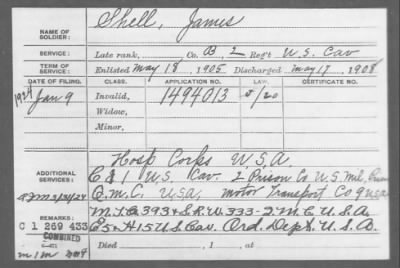 NAME OF SOLDIER: Shell, James
SERVICE: Late rank, Co. B, 2 Reg't U.S. Cav
TERM OF SERVICE: Enlisted May 18, 1905 Discharged May 17, 1908
DATE OF FILING. CLASS. APPLICATION NO. LAW. CERTIFICATE NO.
1924 Jan 9 Invalid, 1494013
Widow,
Minor,
Hosp Corps U.S.A.
ADDITIONAL SERVICES: E & I U.S. Cav. 2 Prison Co U.S. Mil.
Q.M.C. U.S.A, Motor Transport Co 9 U.S.A
REMARKS: M.T.C. 393 & S.R.W. 333-2 M.C U.S.A.
C 1 269 433 E5 & H15 U.S. Cav. Ord. Dept. U.S.A.
COMBINED
Died , 1 , at